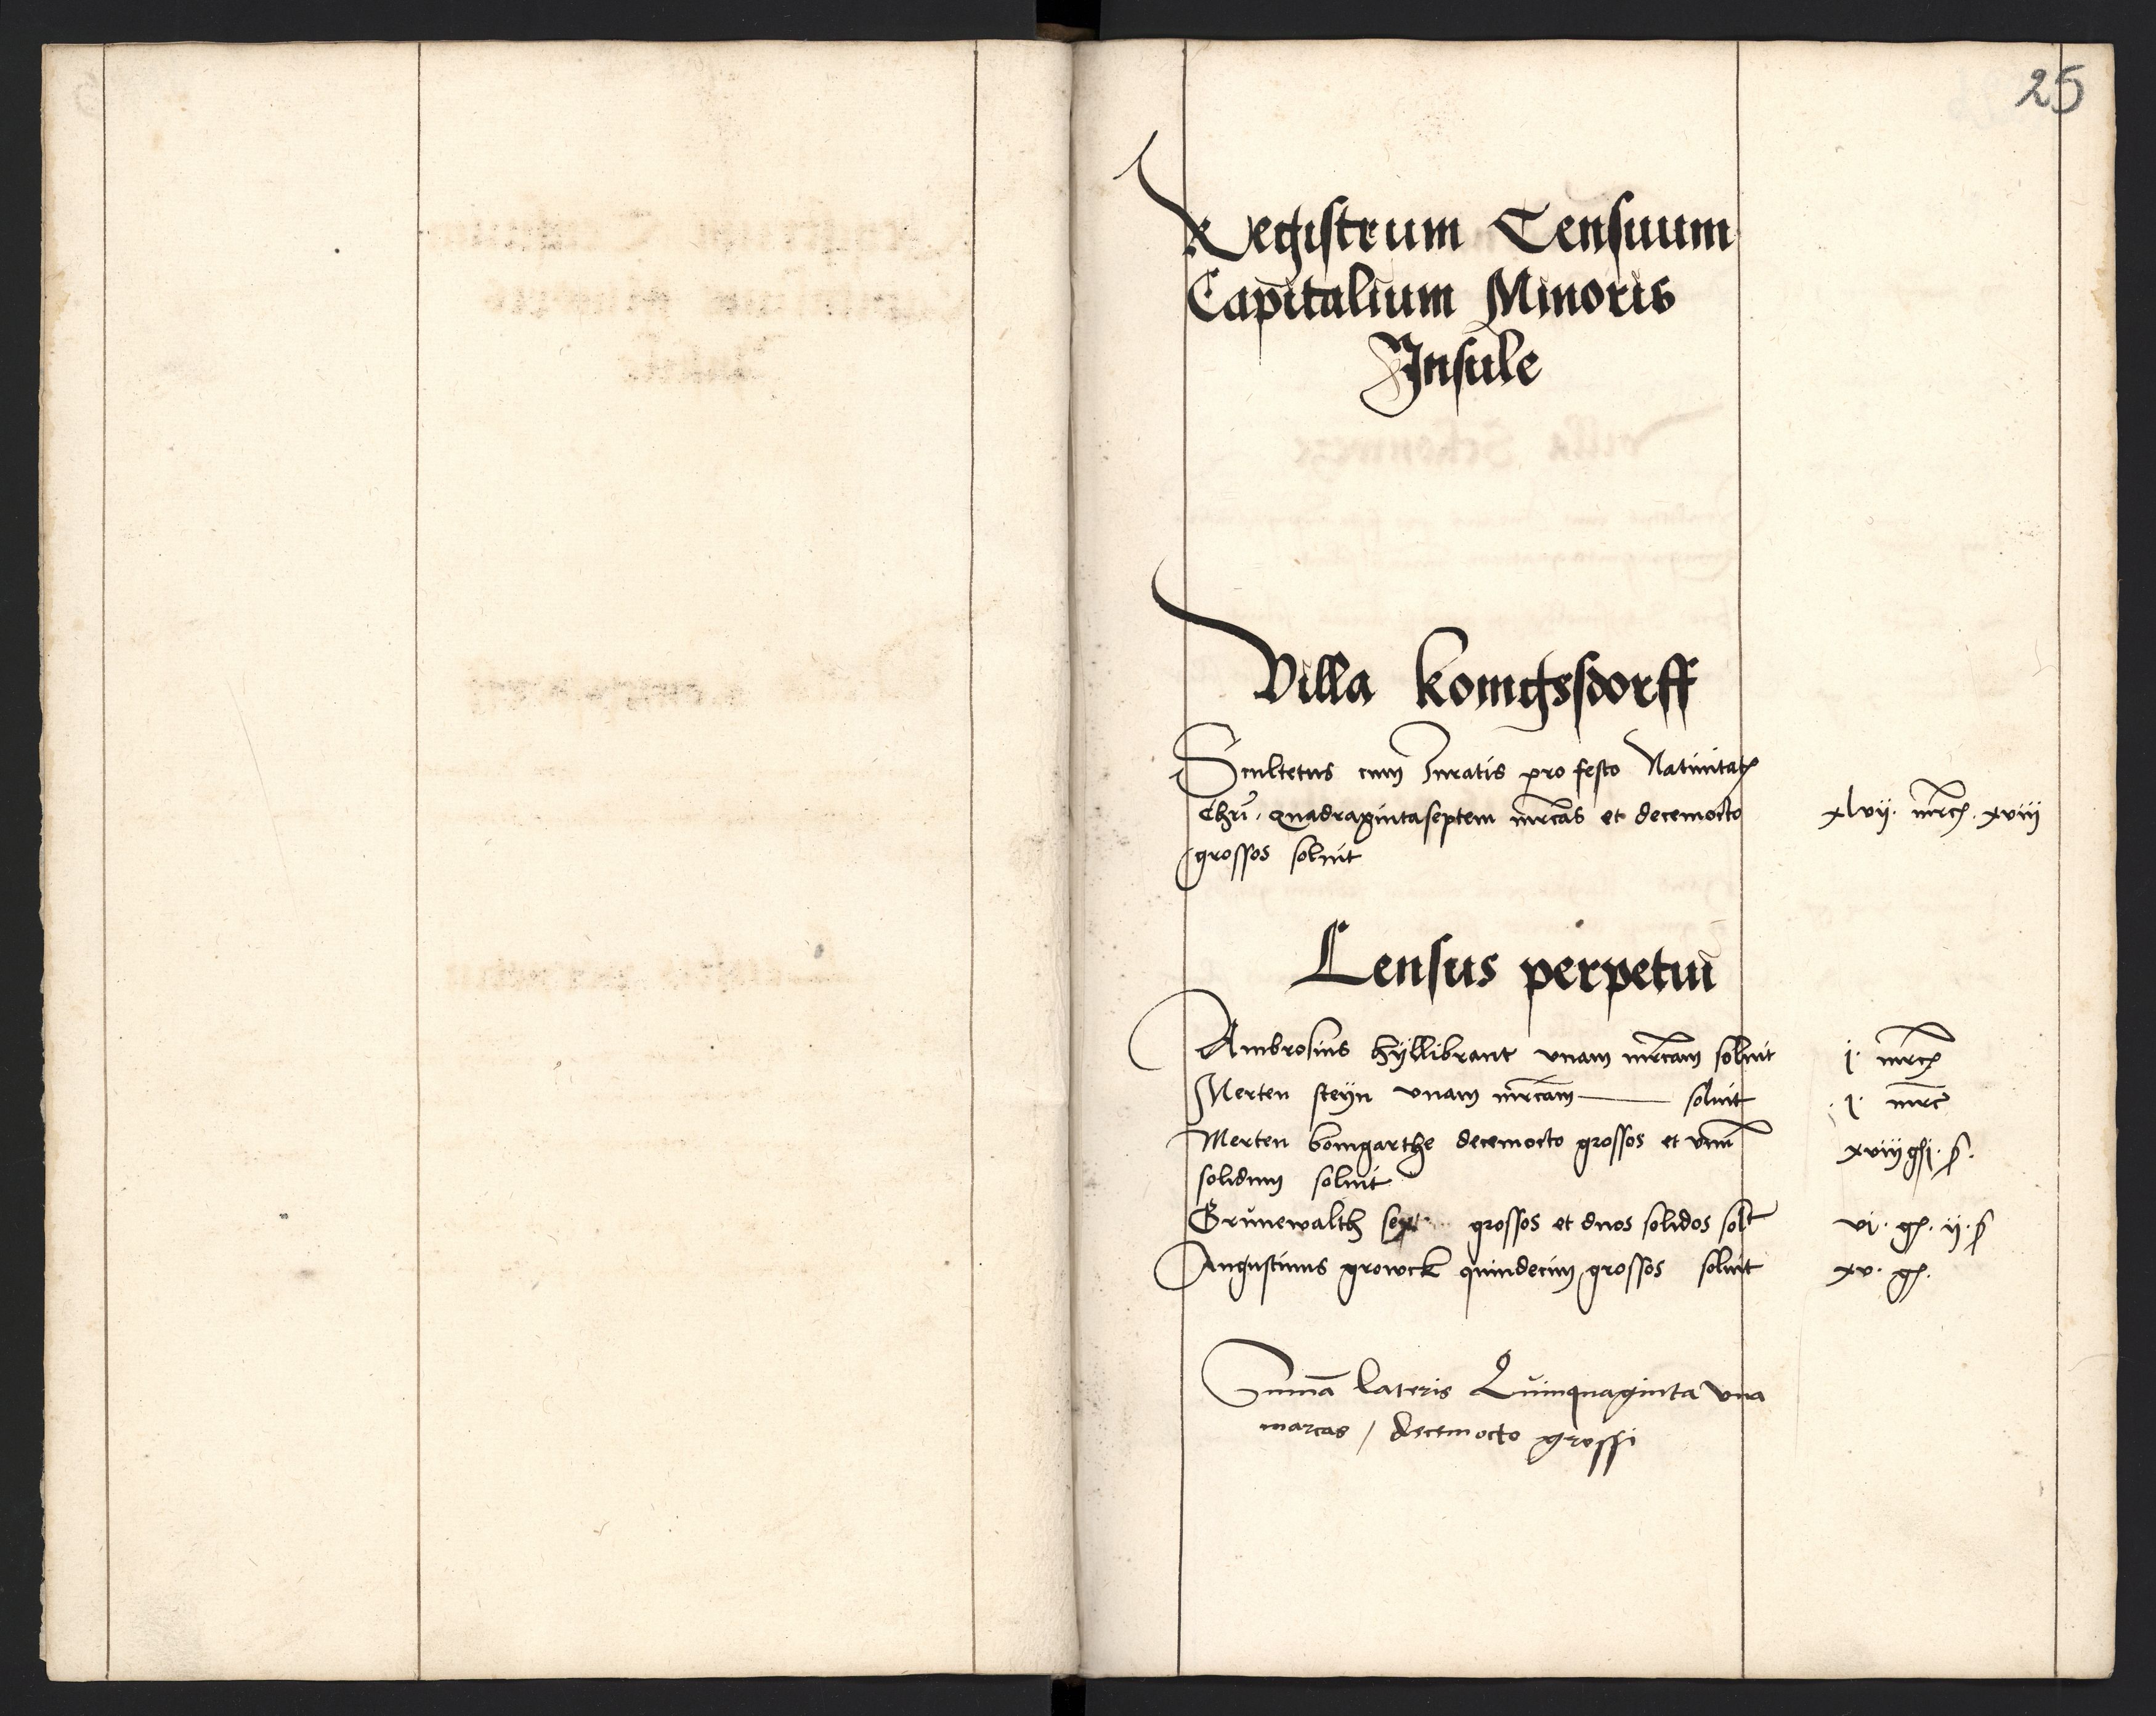 25
Registrum Censuum
Capitalium Minoris
Insule
Villa Konigssdorff
Scultetus cum Juratis pro festo Natiuitatꝭ
Chrī. quadragintaseptem mrcas et decemocto xlvij. mrcꝭ. xviij
grossos soluit
Census perpetui
Ambrosius hyllibrant vnam mrcam soluit j. mrcꝭ
Merten steyn vnam mrcam soluit .j. mrc
Merten bomgarthe decemocto grossos et vnū xviij gͬ j. ß.
solidum soluit
Grunewalth sex grossos et duos solidos solt vi. gꝭ. ij. ß
Augustinus growck quindecim grossos soluit xv. gꝭ.
Sumā lateris Quinquaginta vna
marcas / decemocto grossi